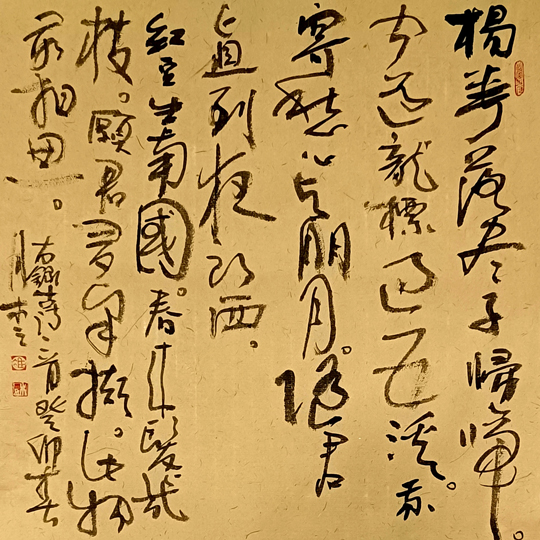 楊華落尽子歸啼。
聞道龍標過五溪。我
寄愁心与明月。随君
直到夜郎西。
紅豆生南國。春来發幾
枝。願君多采擷。此物
最相思。
右錄唐詩二首癸卯春
月